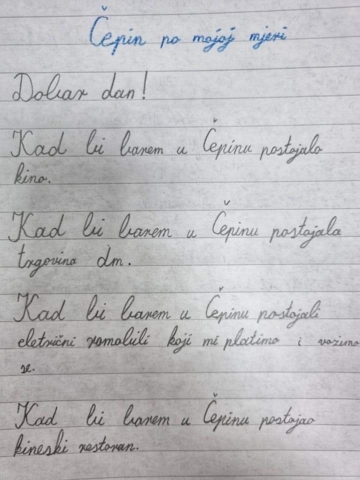 Čepin po mojoj mjeri
Dobar dan!
Kad bi barem u Čepinu postojalo
kino.
Kad bi barem u Čepinu postojala
trgovina dm.
Kad bi barem u Čepinu postojali
eletrični romobili koji mi platimo i vozimo
se.
Kad bi barem u Čepinu postojao
kineski restoran.